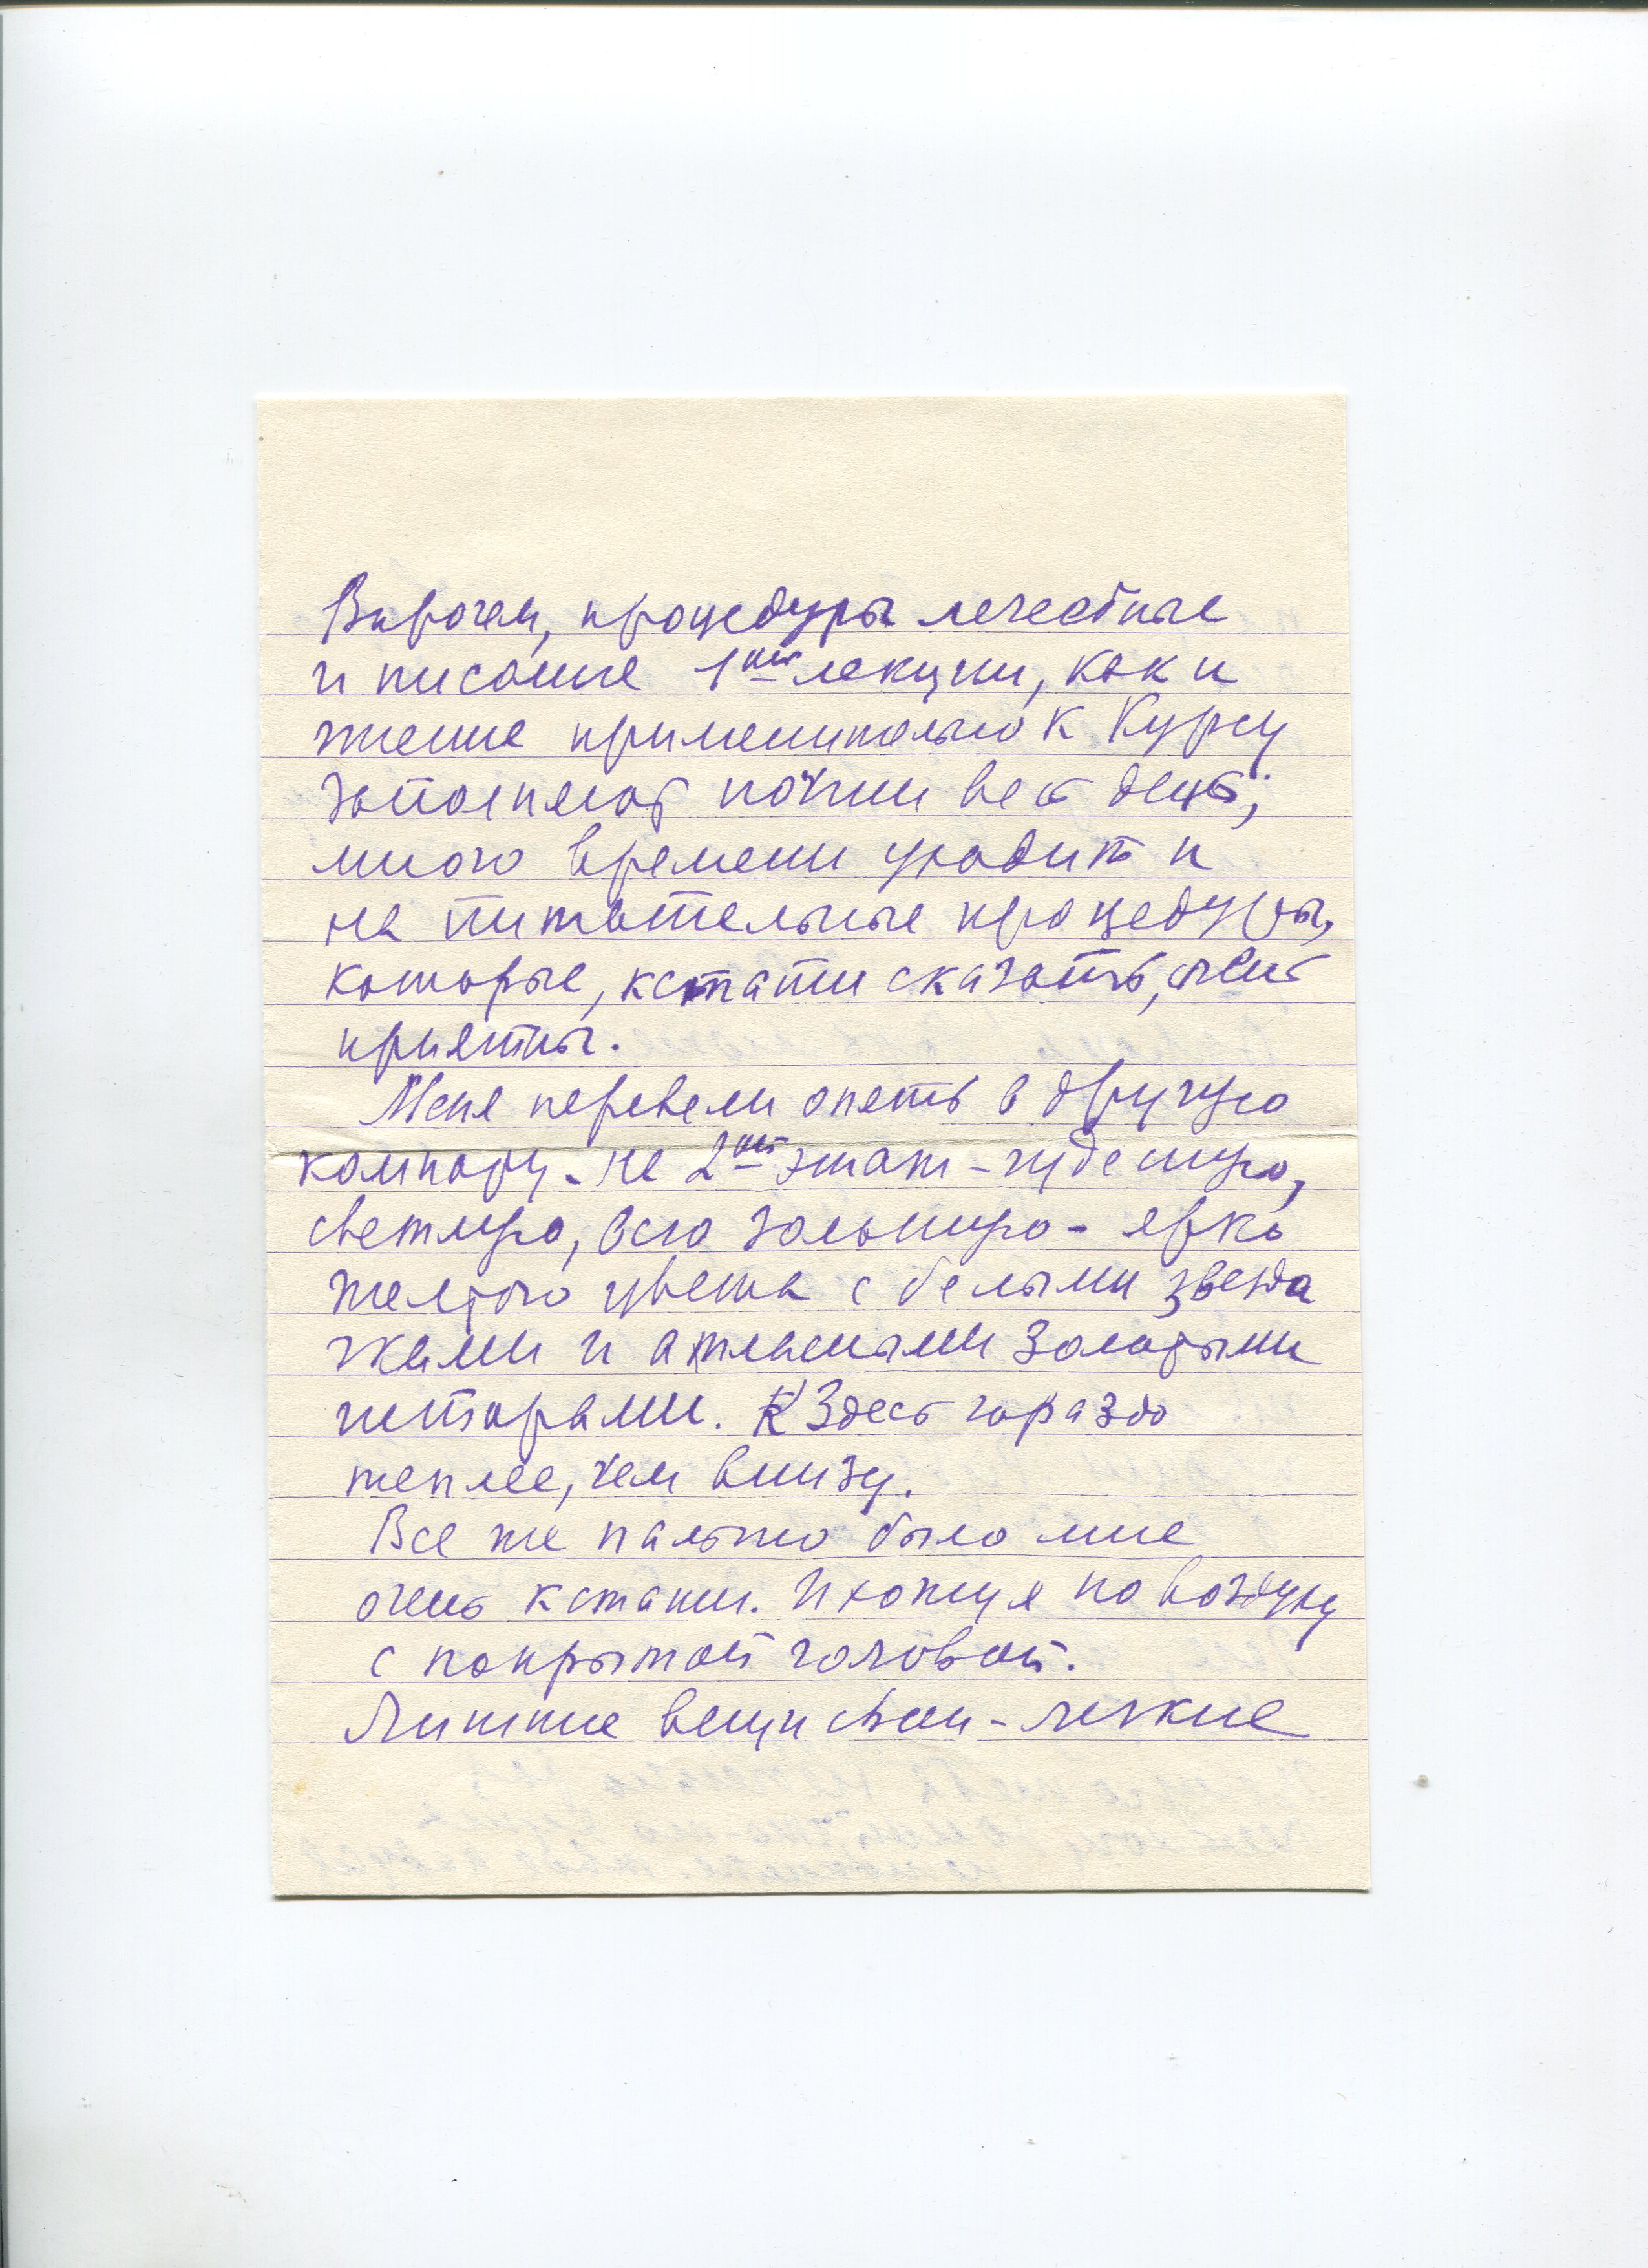 Впрочем, процедуры лечебные
и писание 1ой лекции, как и
чтение применительно к Курсу
заполняют почти весь день;
много времени уходит и
на питательные процедуры,
которые, кстати сказать, очень
приятны.
Меня перевели опять в другую
комнату - на 2ой этаж - чудесную,
светлую, всю золотую - ярко
желтого цвета с белыми звезда
чками и атласными золотыми
шторами. Здесь гораздо
теплее, чем внизу.
Все же пальто было мне
очень кстати. И хожу я по воздуху
с покрытой головой.
Лишние вещи свои - легкие